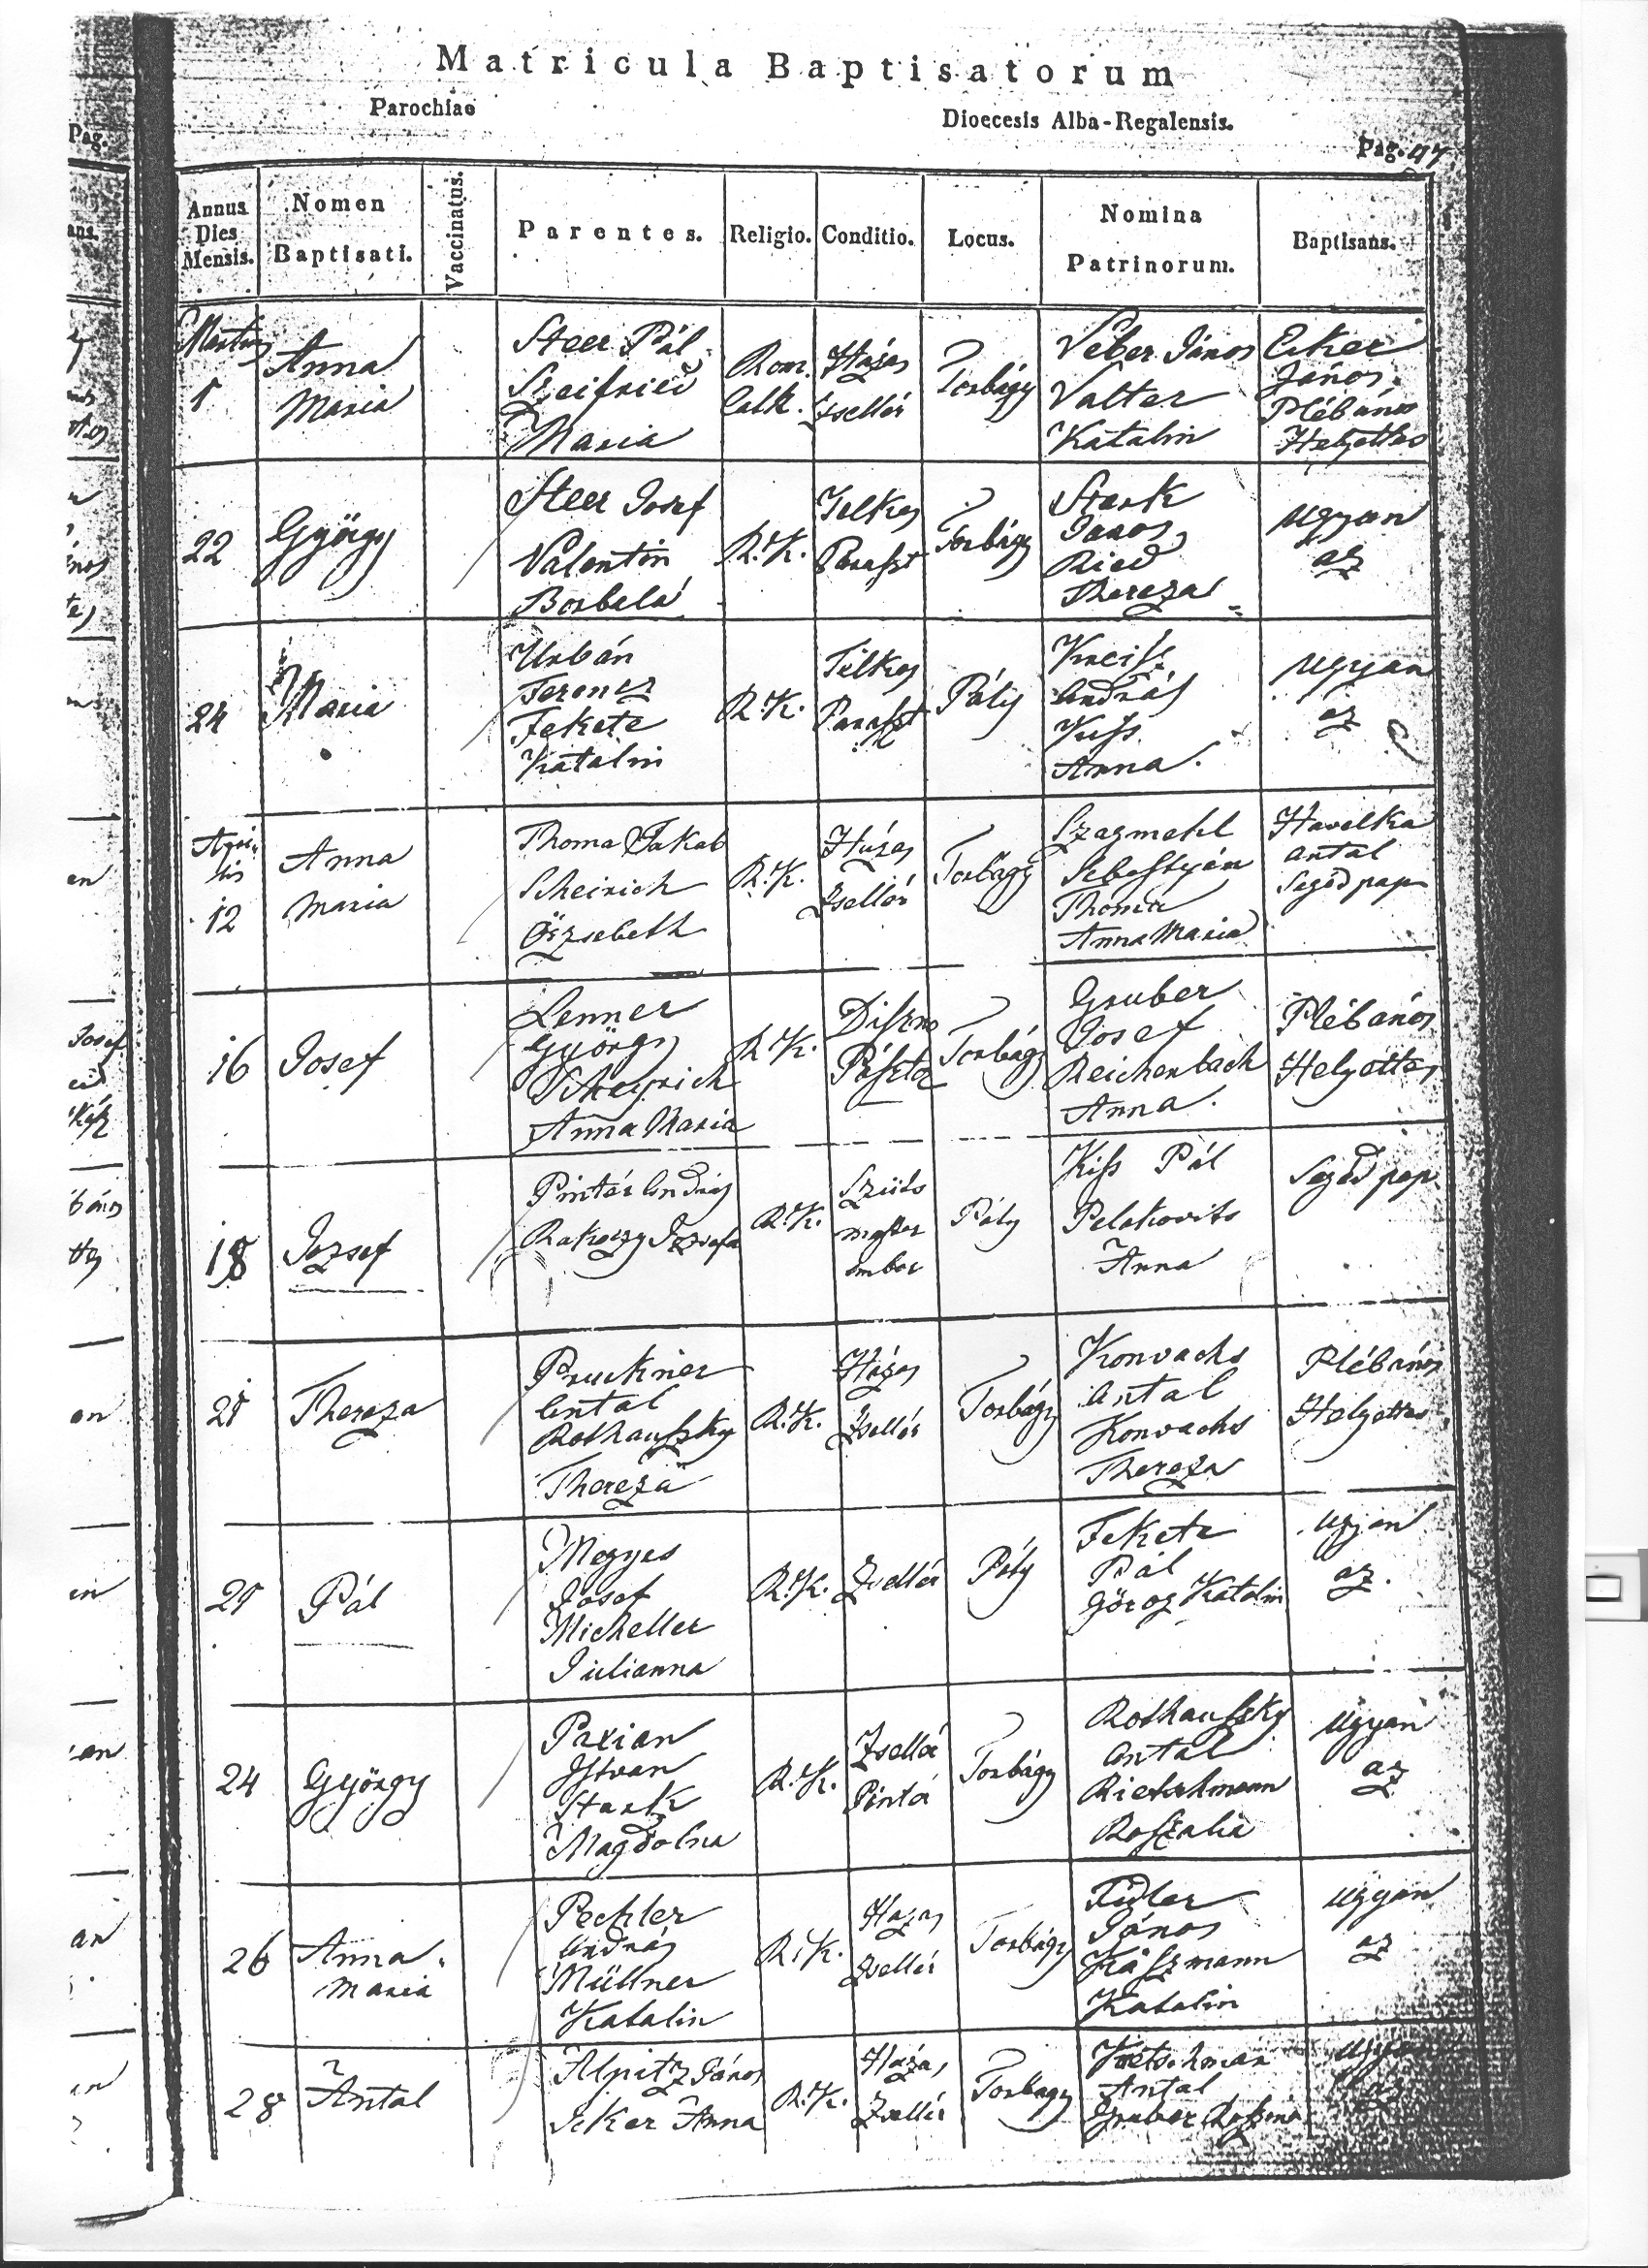 Matricula Baptisatorum
Parochiae
Dioecesis Alba-Regalensis.
Pag.
Pag. 47
Annus Dies Mensis.
Nomen Baptisati.
Vaccinatus.
Parentes.
Religio.
Conditio.
Locus.
Nomina Patrinorum.
Baptisans.
1
Anna
Maria
Steer Pál
Szeifried
Maria
Rom.
Cath.
Házas
Zsellér
Torbágy
Veber János
Valter
Katalin
Ecker
János
Plébános
Helyettes
22
György
Steer Josef
Valentin
Borbala
R. K.
Telkes
Paraszt
Torbágy
Stark
Janos
Ried
Thereza
ugyan
az
24
Maria
Urbán
Ferencz
Fekete
Katalin
R. K.
Telkes
Paraszt
Páty
Kreisz
András
Kiss
Anna.
ugyan
az
Apri-
lis
12
Anna
Maria
Thoma Jakab
Scheirich
Örzsebeth
R. K.
Házas
Zsellér
Torbágy
Szagmehl
Sebestyén
Thoma
Anna Maria
Havelka
Antal
Segéd pap
16
Josef
Lenner
György
Scheyrich
Anna Maria
R. K.
Diszno
Pásztor
Torbágy
Gruber
Josef
Reichenbach
Anna.
Plébános
Helyettes
18
Jozsef
Pintér András
Rakoczy Jozsefa
R. K.
Szüts
mester
ember
Páty
Kiss Pál
Pelakovits
Anna
Segéd pap
21
Thereza
Pruckner
Antal
Rothauszky
Thereza
R. K.
Házas
Zsellér
Torbágy
Konvachs
Antal
Konvachs
Thereza
Plébános
Helyettes
21
Pál
Megyes
Josef
Micheller
Julianna
R. K.
Zsellér
Páty
Fekete
Pál
Görög Katalin
ugyan
az.
24
György
Paxian
Istvan
Stark
Magdolna
R. K.
Zsellér
Pintér
Torbágy
Rothauszky
Antal
Roszalia
ugyan
az
26
Anna
Maria
Pechler
András
Müllner
Katalin
R. K.
Hazas
Zsellér
Torbágy
Fidler
János
Kászmann
Katalin
ugyan
az
28
Antal
Alpitz János
Eker Anna
R. K.
Házas
Zsellér
Torbágy
Kretschmar
Antal
Gruber
ugyan
az